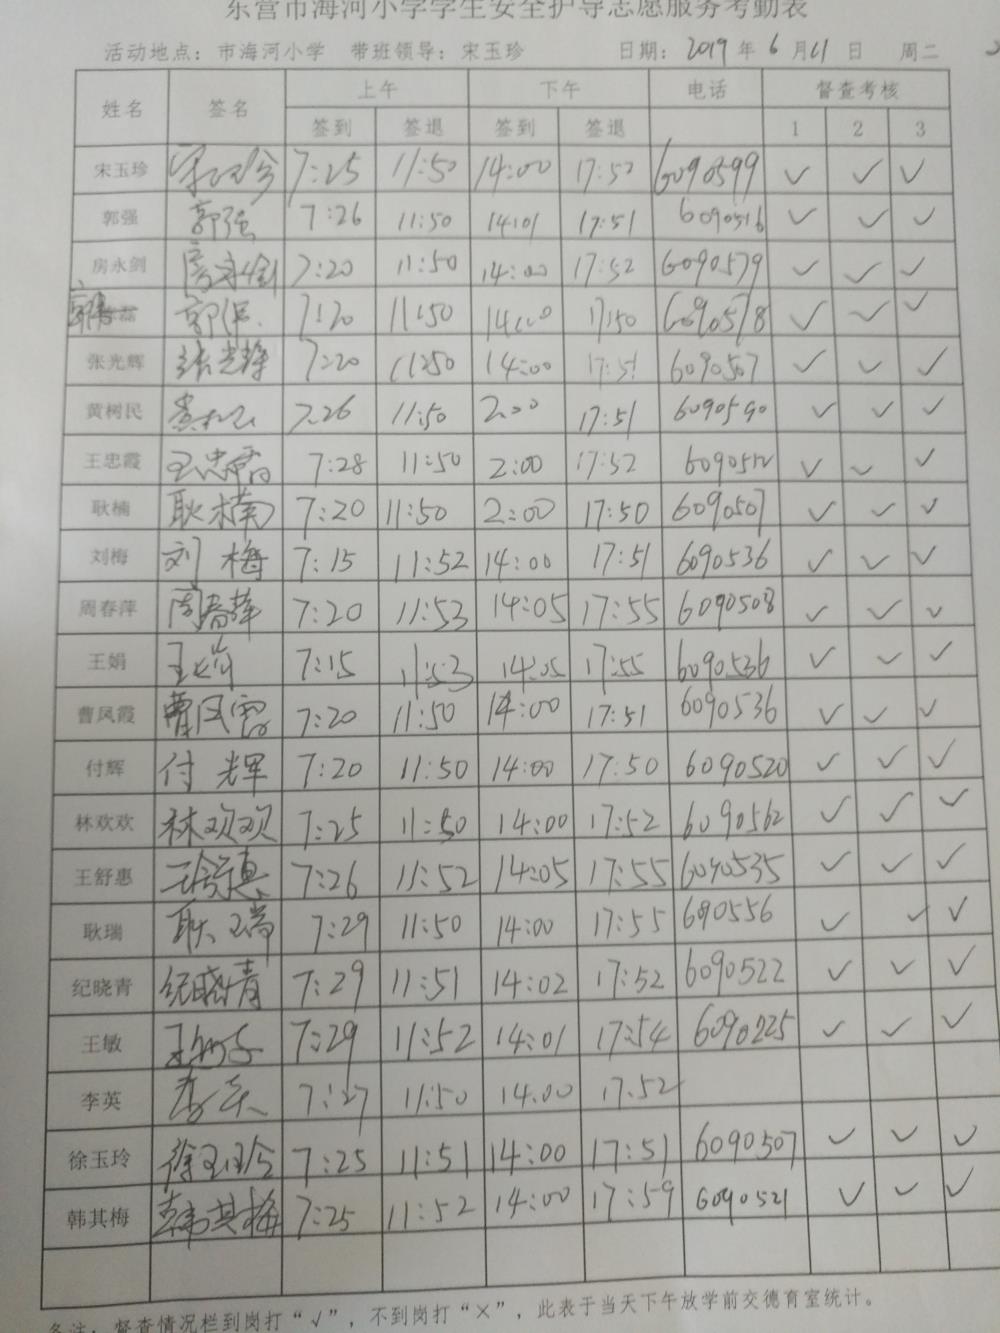 东营市海河小学学生安全护导志愿服务考勤表
活动地点：市海河小学 带班领导：宋玉珍 日期：2019年6月11日 周二
姓名 签名 上午 下午 电话 督查考核
签到 签退 签到 签退 1 2 3
宋玉珍 宋玉珍 7:25 11:50 14:00 17:52 6090599 ✓ ✓ ✓
郭强 郭强 7:26 11:50 14:01 17:51 6090516 ✓ ✓ ✓
房永剑 房永剑 7:20 11:50 14:00 17:52 6090579 ✓ ✓ ✓
7:20 11:50 14:00 17:50 6090578 ✓ ✓ ✓
张光辉 张光辉 7:20 11:50 14:00 17:51 6090507 ✓ ✓ ✓
黄树民 7:26 11:50 2:00 17:51 6090590 ✓ ✓ ✓
王忠霞 王忠霞 7:28 11:50 2:00 17:52 6090512 ✓ ✓ ✓
耿楠 耿楠 7:20 11:50 2:00 17:50 6090507 ✓ ✓ ✓
刘梅 刘梅 7:15 11:52 14:00 17:51 6090536 ✓ ✓ ✓
周春萍 周春萍 7:20 11:53 14:05 17:55 6090508 ✓ ✓ ✓
王娟 王娟 7:15 11:53 14:05 17:55 6090536 ✓ ✓ ✓
曹凤霞 曹凤霞 7:20 11:50 14:00 17:51 6090536 ✓ ✓ ✓
付辉 付辉 7:20 11:50 14:00 17:50 6090520 ✓ ✓ ✓
林欢欢 林欢欢 7:25 11:50 14:00 17:52 6090562 ✓ ✓ ✓
王舒惠 王舒惠 7:26 11:52 14:05 17:55 6090535 ✓ ✓ ✓
耿瑞 耿瑞 7:29 11:50 14:00 17:55 690556 ✓ ✓ ✓
纪晓青 纪晓青 7:29 11:51 14:02 17:52 6090522 ✓ ✓ ✓
王敏 7:29 11:52 14:01 17:54 6090225 ✓ ✓ ✓
李英 李英 7:27 11:50 14:00 17:52
徐玉玲 徐玉玲 7:25 11:51 14:00 17:51 6090507 ✓ ✓ ✓
韩其梅 韩其梅 7:25 11:52 14:00 17:59 6090521 ✓ ✓ ✓
备注：督查情况栏到岗打“√”，不到岗打“×”，此表于当天下午放学前交德育室统计。